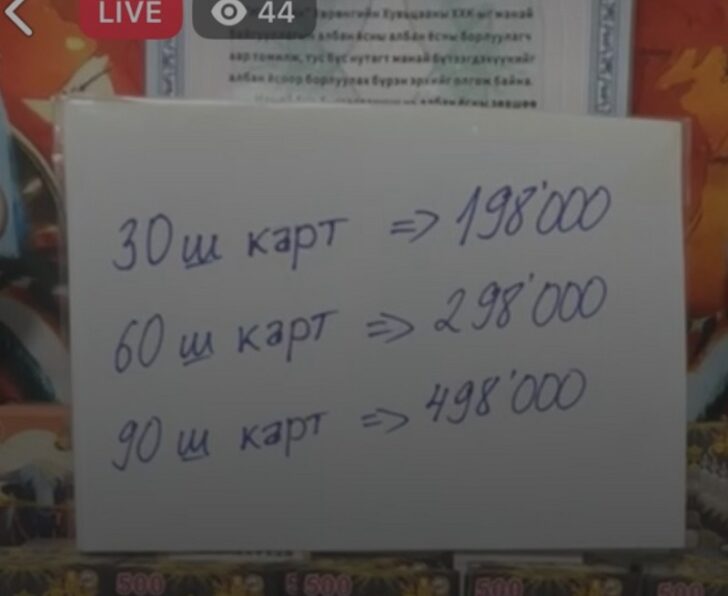 LIVE 44
" Хөрөнгийн Хувьцааны ХХК-ыг манай
байгууллагын албан ёсны албан ёсны борлуулагч
аар томилж, тус бүс нутагт манай бүтээгдэхүүнийг
албан ёсоор борлуулах бүрэн эрхийг олгож байна.
албан ёсны зөвшөө
30 ш карт => 198'000
60 ш карт => 298'000
90 ш карт => 498'000
500 500 500 500